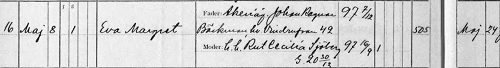 Fader: Åkeriäg. Johan Ragnar 97 2/12
16 Maj 8 1 Eva Margret Bäckman 42 505 Maj 24
Moder: Rut Cecilia Sjöberg 97 16/9 1
G 20 30/12